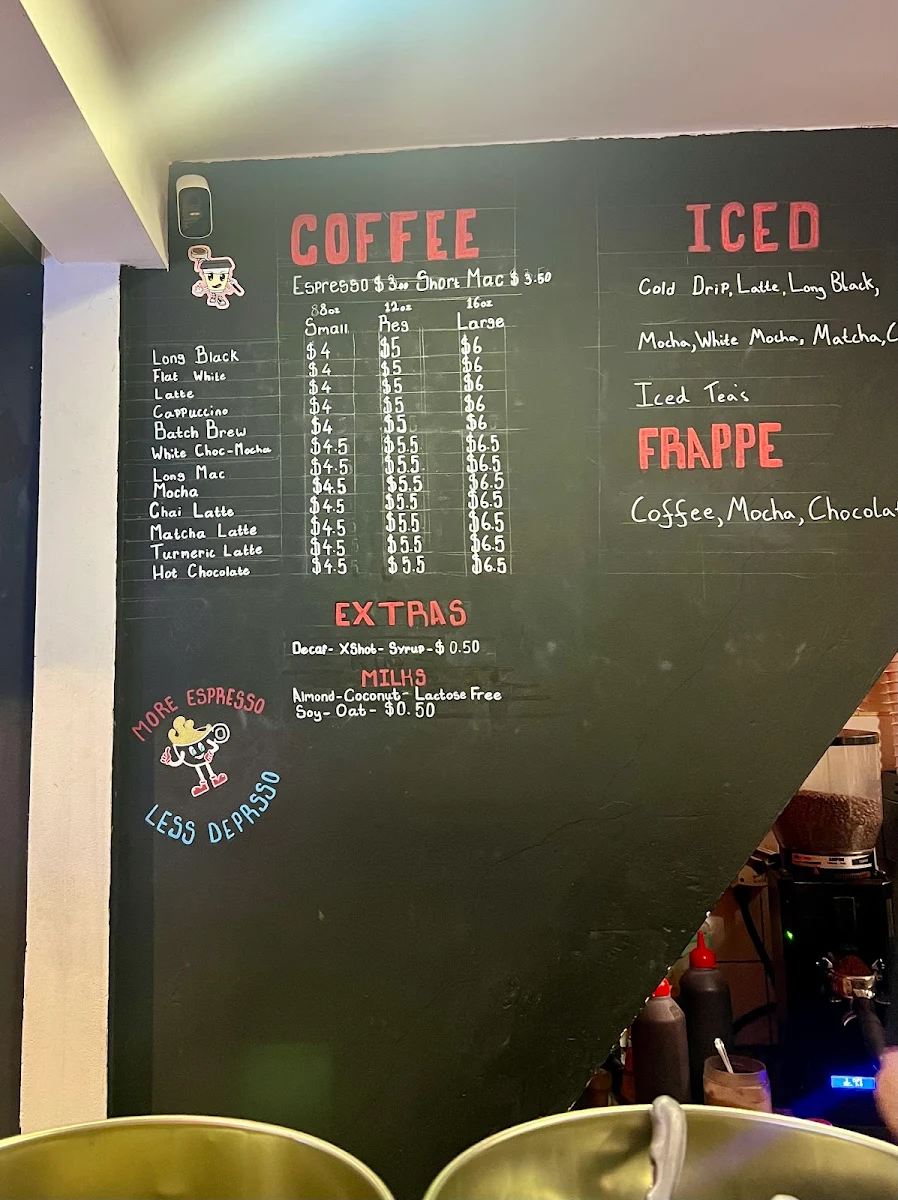 COFFEE
Espresso $3.00 Short Mac $3.50
8oz 12oz 16oz
Small Reg Large
Long Black $4 $5 $6
Flat White $4 $5 $6
Latte $4 $5 $6
Cappuccino $4 $5 $6
Batch Brew $4 $5 $6
White Choc-Mocha $4.5 $5.5 $6.5
Long Mac $4.5 $5.5 $6.5
Mocha $4.5 $5.5 $6.5
Chai Latte $4.5 $5.5 $6.5
Matcha Latte $4.5 $5.5 $6.5
Turmeric Latte $4.5 $5.5 $6.5
Hot Chocolate $4.5 $5.5 $6.5
EXTRAS
Decaf- XShot- Syrup-$0.50
MILKS
Almond-Coconut- Lactose Free
Soy- Oat- $0.50
MORE ESPRESSO
LESS DEPRSSO
ICED
Cold Drip, Latte, Long Black,
Mocha, White Mocha, Matcha, C
Iced Tea's
FRAPPE
Coffee, Mocha, Chocolat